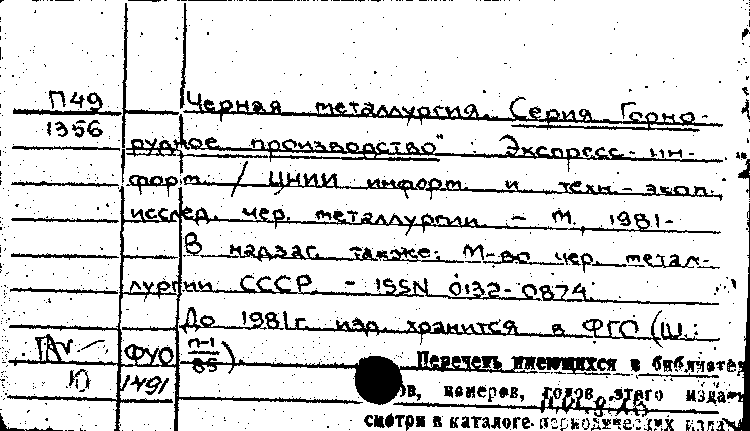 П49
1356
Черная металлургия. Серия "Горно-
рудное производство" : Экспресс-ин-
форм. / ЦНИИ информ. и техн.-экон.
исслед. чер. металлургии. - М., 1981-
В надзаг. также: М-во чер. метал-
лургии СССР. - ISSN 0132-0874.
До 1981г. изд. хранится в ФГО (Ш.:
ФУО П-1/85).
Ю 1491
Перечень имеющихся в библиотеке
ов, номеров, годов этого издан
смотри в каталоге периодических издани